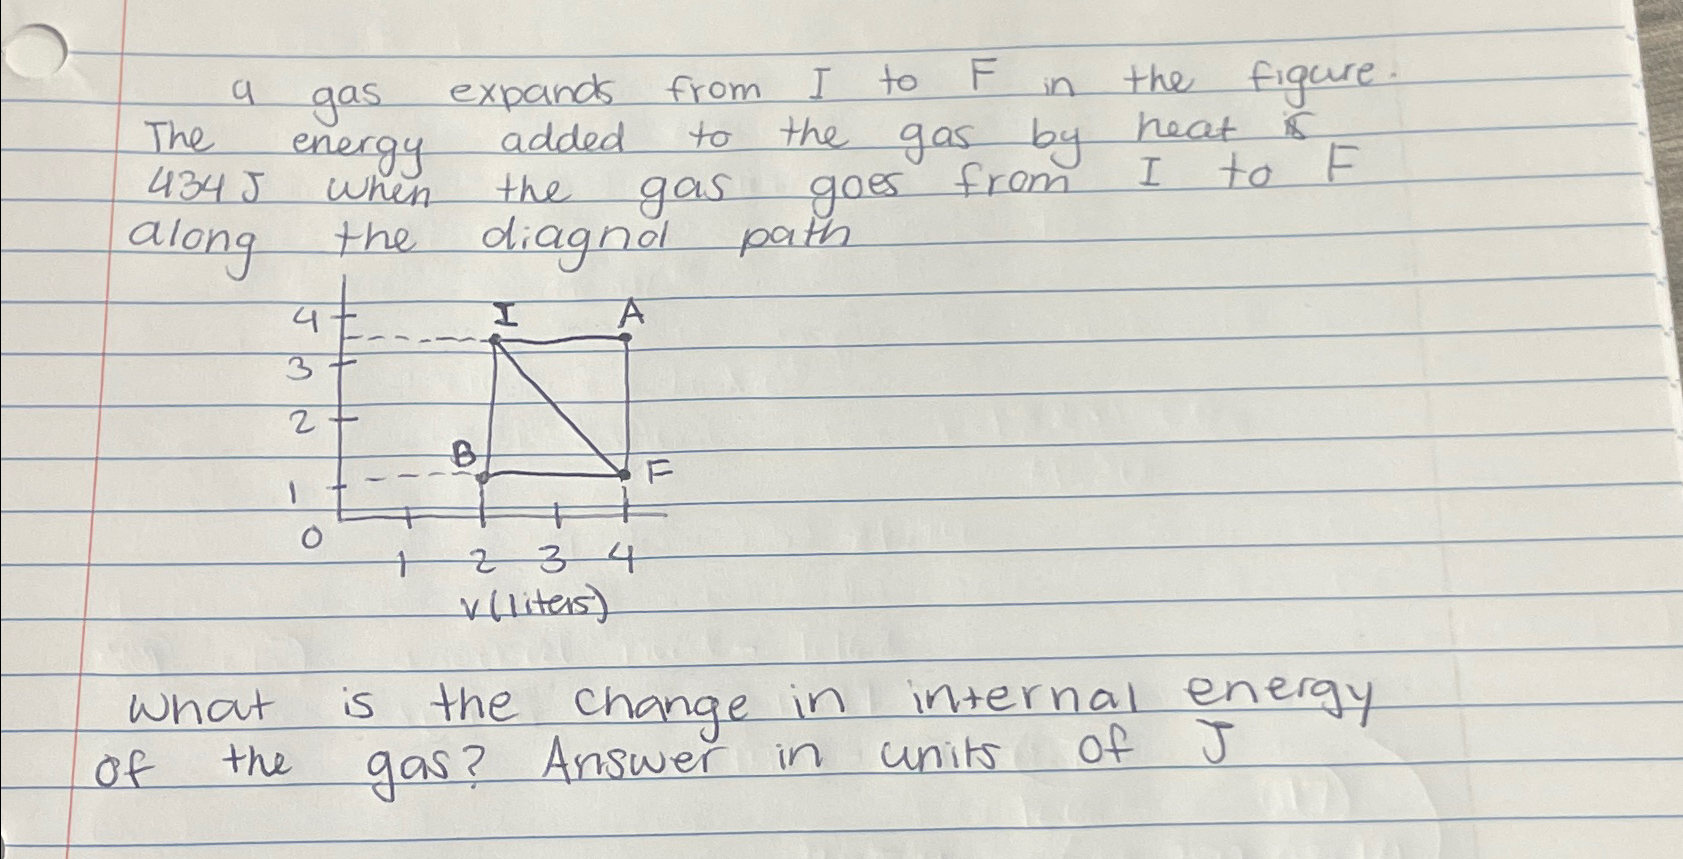 a gas expands from I to F in the figure.
The energy added to the gas by heat is
434 J when the gas goes from I to F
along the diagnol path
4
I
A
3
2
B
F
1
0
1 2 3 4
V(liters)
What is the change in internal energy
of the gas? Answer in units of J